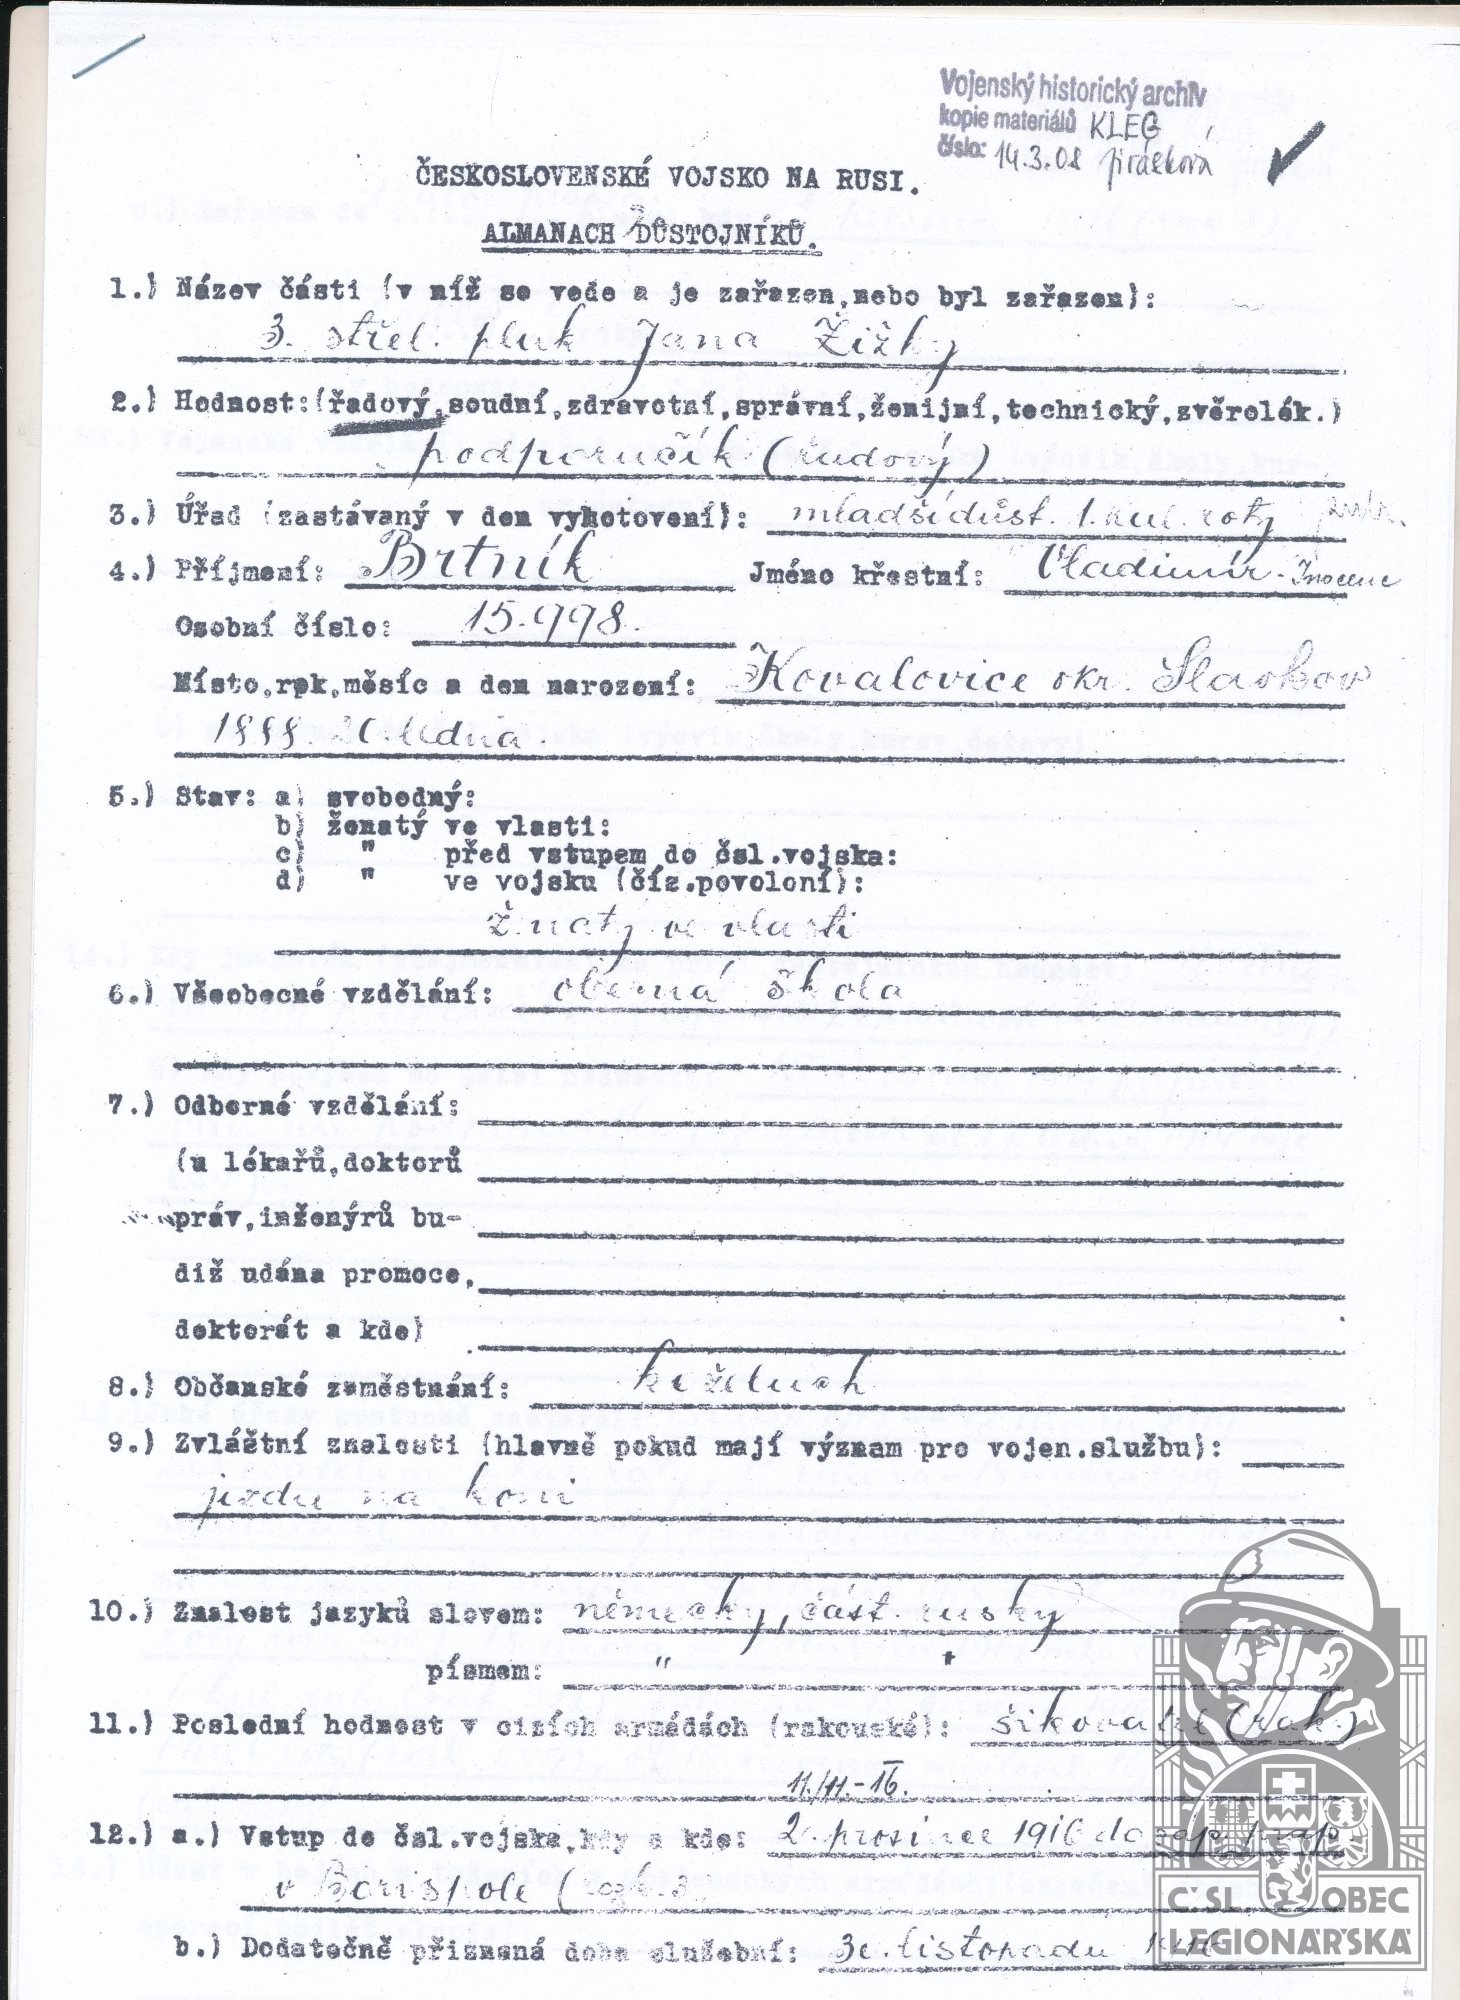 Vojenský historický archiv
kopie materiálů KLEG
číslo: 14.3.08 Jirásková
ČESKOSLOVENSKÉ VOJSKO NA RUSI.
ALMANACH DŮSTOJNÍKŮ.
1.) Název části (v níž se vede a je zařazen,nebo byl zařazen):
3. střel. pluk Jana Žižky
2.) Hodnost:(řadový,soudní,zdravotní,správní,ženijní,technický,zvěrolék.)
podporučík (řadový)
3.) Úřad (zastávaný v den vyhotovení): mladší důst. 1. kul. roty
4.) Příjmení: Brtník Jméno křestní: Vladimír-Inocenc
Osobní číslo: 15.998.
Místo,rok,měsíc a den narození: Kovalovice okr. Slavkov
1888. ledna.
5.) Stav: a) svobodný:
b) ženatý ve vlasti:
c) " před vstupem do čsl.vojska:
d) " ve vojsku (číz.povolení):
ženatý ve vlasti
6.) Všeobecné vzdělání: obecná škola
7.) Odborné vzdělání:
(u lékařů,doktorů
práv,inženýrů bu-
diž udána promoce,
doktorát a kde)
8.) Občanské zaměstnání: koželuch
9.) Zvláštní znalosti (hlavně pokud mají význam pro vojen.službu):
jízdu na koni
10.) Znalost jazyků slovem: německy, část. rusky
písmem: " "
11.) Poslední hodnost v cizích armádách (rakouské): šikovatel (rak.)
11./11.-16.
12.) a.) Vstup do čsl.vojska,kdy a kde: 2. prosince 1916 do záp. prap.
v Borispole
b.) Dodatečně přiznaná doba služební: listopadu 1916
ČSL. OBEC
LEGIONÁŘSKÁ